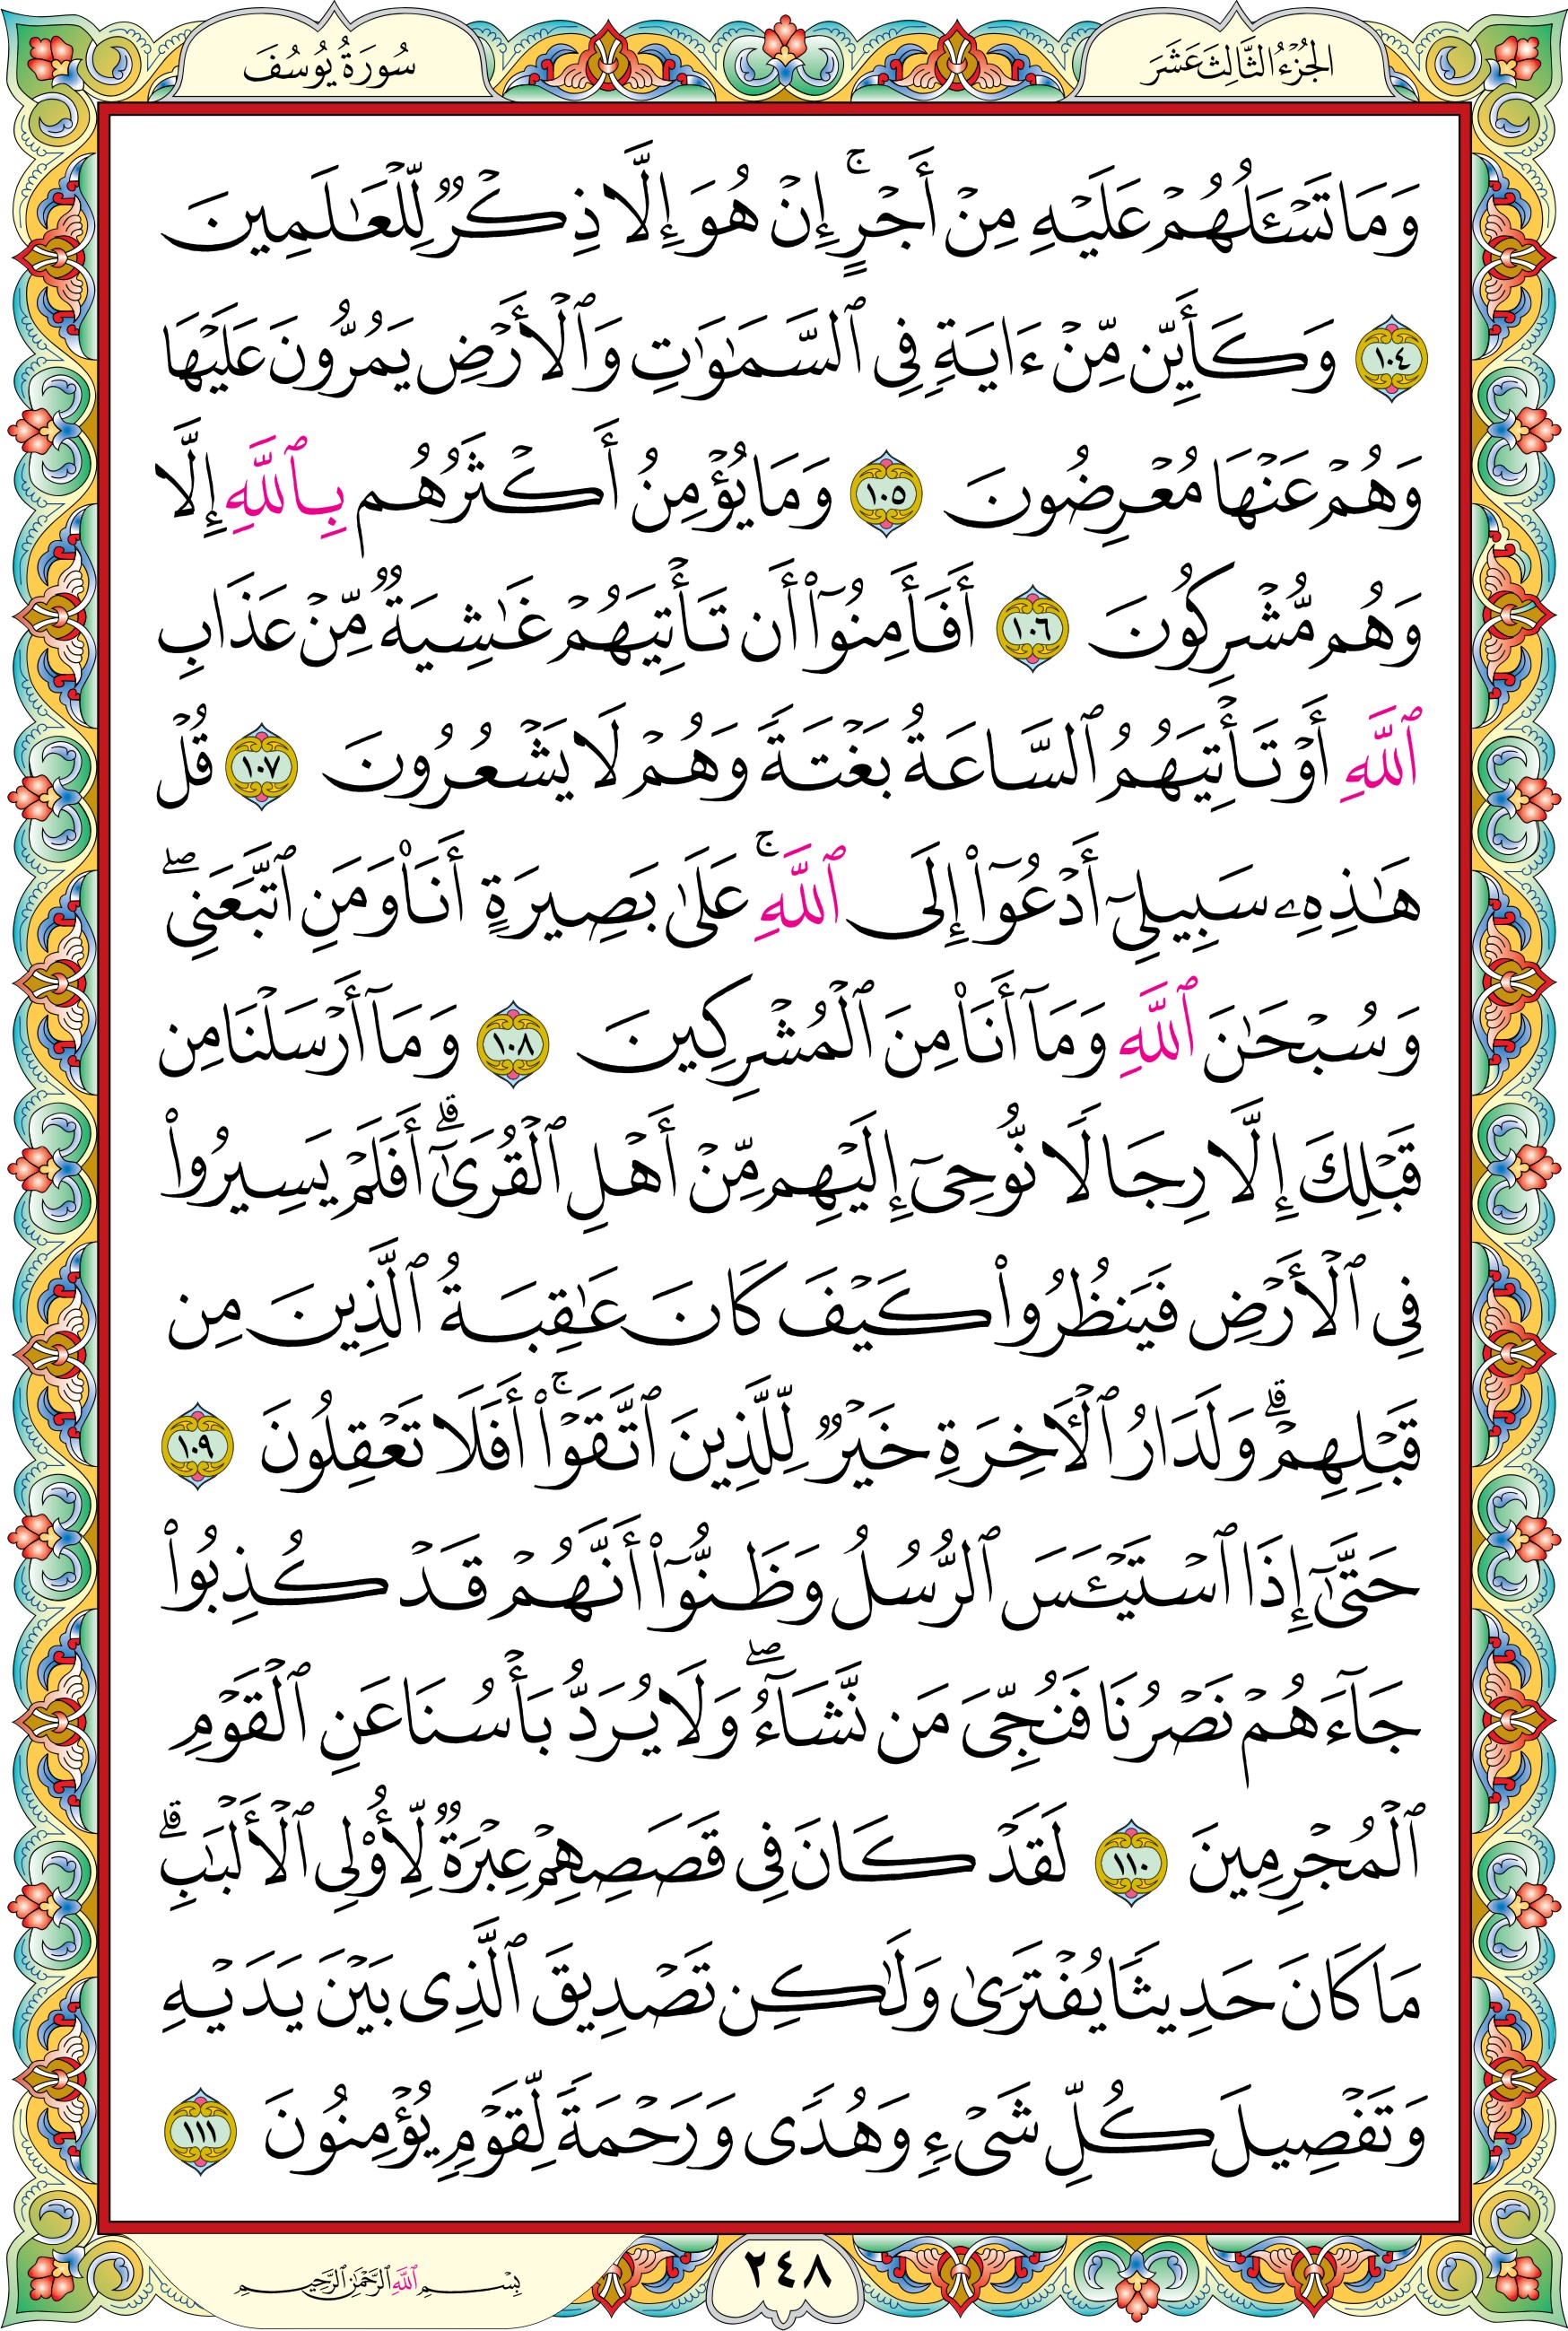 الجُزْءُ الثَّالِثَ عَشَرَ
سُورَةُ يُوسُفَ
وَمَا تَسْـَٔلُهُمْ عَلَيْهِ مِنْ أَجْرٍۚ إِنْ هُوَ إِلَّا ذِكْرٌ لِّلْعَٰلَمِينَ
١٠٤ وَكَأَيِّن مِّنْ ءَايَةٍ فِى ٱلسَّمَٰوَٰتِ وَٱلْأَرْضِ يَمُرُّونَ عَلَيْهَا
وَهُمْ عَنْهَا مُعْرِضُونَ ١٠٥ وَمَا يُؤْمِنُ أَكْثَرُهُم بِٱللَّهِ إِلَّا
وَهُم مُّشْرِكُونَ ١٠٦ أَفَأَمِنُوٓا۟ أَن تَأْتِيَهُمْ غَٰشِيَةٌ مِّنْ عَذَابِ
ٱللَّهِ أَوْ تَأْتِيَهُمُ ٱلسَّاعَةُ بَغْتَةً وَهُمْ لَا يَشْعُرُونَ ١٠٧ قُلْ
هَٰذِهِۦ سَبِيلِىٓ أَدْعُوٓا۟ إِلَى ٱللَّهِۚ عَلَىٰ بَصِيرَةٍ أَنَا۠ وَمَنِ ٱتَّبَعَنِىۖ
وَسُبْحَٰنَ ٱللَّهِ وَمَآ أَنَا۠ مِنَ ٱلْمُشْرِكِينَ ١٠٨ وَمَآ أَرْسَلْنَا مِن
قَبْلِكَ إِلَّا رِجَالًا نُّوحِىٓ إِلَيْهِم مِّنْ أَهْلِ ٱلْقُرَىٰٓۗ أَفَلَمْ يَسِيرُوا۟
فِى ٱلْأَرْضِ فَيَنظُرُوا۟ كَيْفَ كَانَ عَٰقِبَةُ ٱلَّذِينَ مِن
قَبْلِهِمْۗ وَلَدَارُ ٱلْءَاخِرَةِ خَيْرٌ لِّلَّذِينَ ٱتَّقَوْا۟ۚ أَفَلَا تَعْقِلُونَ ١٠٩
حَتَّىٰٓ إِذَا ٱسْتَيْـَٔسَ ٱلرُّسُلُ وَظَنُّوٓا۟ أَنَّهُمْ قَدْ كُذِبُوا۟
جَآءَهُمْ نَصْرُنَا فَنُجِّىَ مَن نَّشَآءُۖ وَلَا يُرَدُّ بَأْسُنَا عَنِ ٱلْقَوْمِ
ٱلْمُجْرِمِينَ ١١٠ لَقَدْ كَانَ فِى قَصَصِهِمْ عِبْرَةٌ لِّأُو۟لِى ٱلْأَلْبَٰبِۗ
مَا كَانَ حَدِيثًا يُفْتَرَىٰ وَلَٰكِن تَصْدِيقَ ٱلَّذِى بَيْنَ يَدَيْهِ
وَتَفْصِيلَ كُلِّ شَىْءٍ وَهُدًى وَرَحْمَةً لِّقَوْمٍ يُؤْمِنُونَ ١١١
٢٤٨
بِسْمِ ٱللَّهِ ٱلرَّحْمَٰنِ ٱلرَّحِيمِ